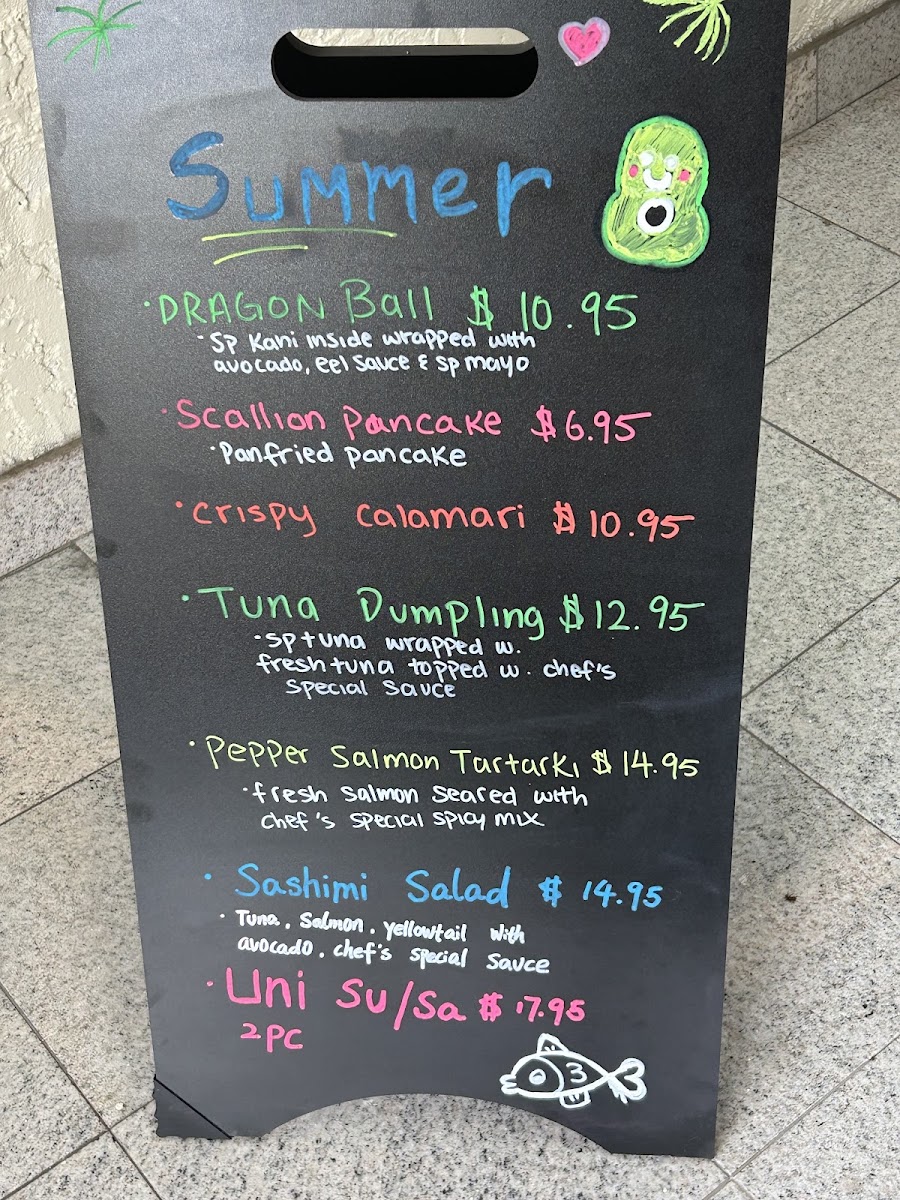 Summer
·DRAGON Ball $ 10.95
·SP Kani inside wrapped with
avocado, eel sauce & sp mayo
·Scallion pancake $6.95
·Panfried pancake
·crispy calamari $10.95
·Tuna Dumpling $12.95
·sp tuna wrapped w.
fresh tuna topped w. chef's
special sauce
·Pepper salmon Tartarki $14.95
·fresh salmon seared with
chef's special spicy mix
·Sashimi Salad $ 14.95
·Tuna. Salmon. yellowtail with
avocado. chef's special sauce
·Uni Su/Sa $ 17.95
2PC
3